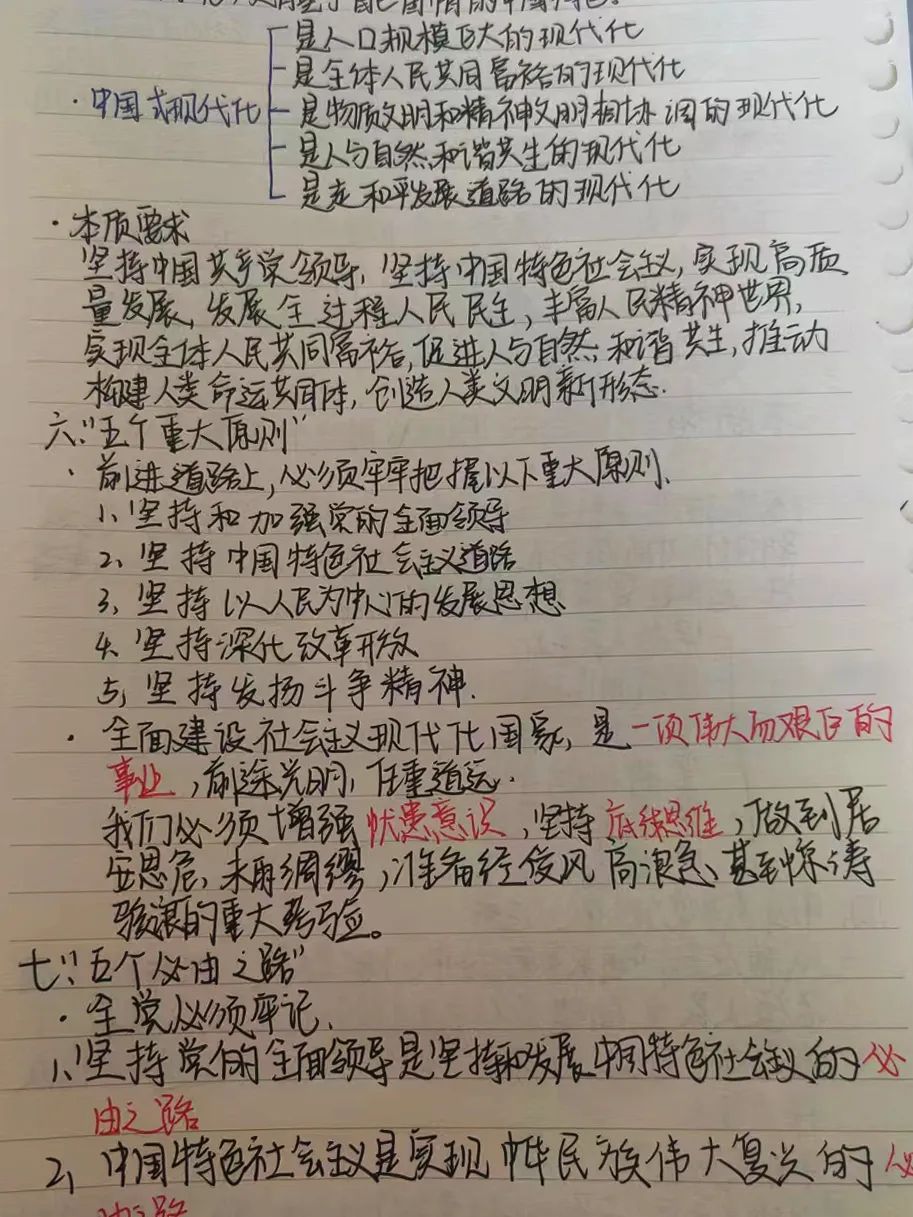 是人口规模巨大的现代化
是全体人民共同富裕的现代化
·中国式现代化 是物质文明和精神文明相协调的现代化
是人与自然和谐共生的现代化
是走和平发展道路的现代化
·本质要求
坚持中国共产党领导,坚持中国特色社会主义,实现高质
量发展,发展全过程人民民主,丰富人民精神世界,
实现全体人民共同富裕,促进人与自然和谐共生,推动
构建人类命运共同体,创造人类文明新形态.
六."五个重大原则"
·前进道路上,必须牢牢把握以下重大原则.
1、坚持和加强党的全面领导
2、坚持中国特色社会主义道路
3、坚持以人民为中心的发展思想
4、坚持深化改革开放
5、坚持发扬斗争精神.
·全面建设社会主义现代化国家,是一项伟大而艰巨的
事业,前途光明,任重道远.
我们必须增强忧患意识,坚持底线思维,做到居
安思危、未雨绸缪,准备经受风高浪急、甚至惊涛
骇浪的重大考验。
七."五个必由之路"
·全党必须牢记.
1、坚持党的全面领导是坚持和发展中国特色社会主义的必
由之路
2、中国特色社会主义是实现中华民族伟大复兴的必
由之路